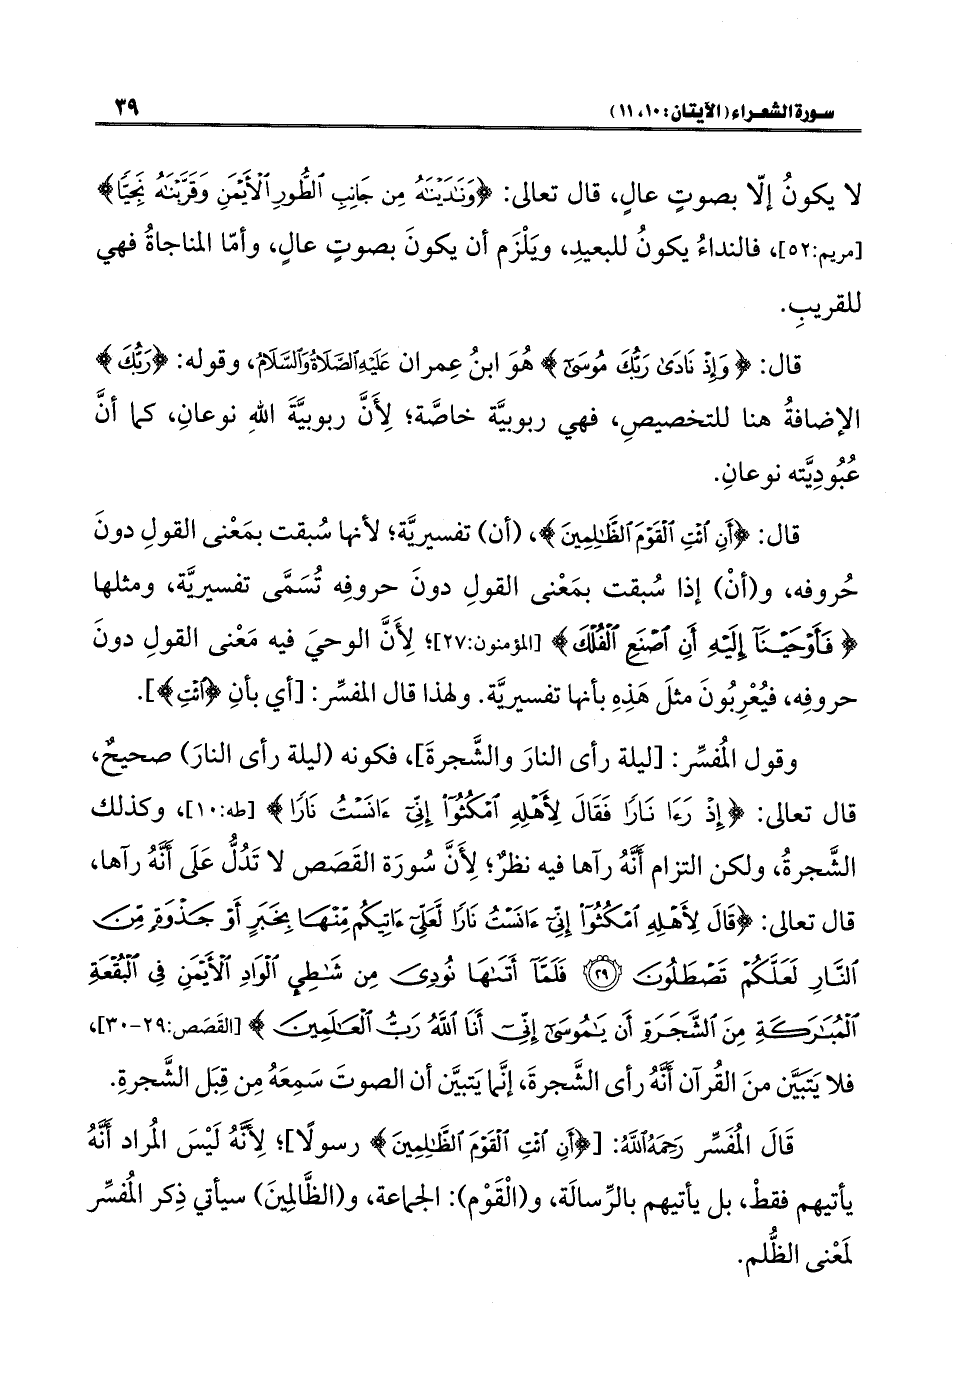 سورة الشعراء (الآيتان: ١٠، ١١) ٣٩
لا يكونُ إلّا بصوتٍ عالٍ، قال تعالى: ﴿وَنَٰدَيْنَٰهُ مِن جَانِبِ ٱلطُّورِ ٱلْأَيْمَنِ وَقَرَّبْنَٰهُ نَجِيًّا﴾
[مريم:٥٢]، فالنداءُ يكونُ للبعيدِ، ويَلْزَم أن يكونَ بصوتٍ عالٍ، وأمّا المناجاةُ فهي
للقريبِ.
قال: ﴿وَإِذْ نَادَىٰ رَبُّكَ مُوسَىٰٓ﴾ هُوَ ابنُ عِمران عَلَيْهِ الصَّلَاةُ وَالسَّلَامُ، وقوله: ﴿رَبُّكَ﴾
الإضافةُ هنا للتخصيصِ، فهي ربوبيَّة خاصَّة؛ لِأَنَّ ربوبيَّةَ اللهِ نوعانِ، كما أنَّ
عُبُودِيَّته نوعانِ.
قال: ﴿أَنِ ٱئْتِ ٱلْقَوْمَ ٱلظَّٰلِمِينَ﴾، (أن) تفسيريَّة؛ لأنها سُبقت بمَعْنى القولِ دونَ
حُروفه، و(أنْ) إذا سُبقت بمَعْنى القولِ دونَ حروفِه تُسَمَّى تفسيريَّة، ومثلها
﴿فَأَوْحَيْنَآ إِلَيْهِ أَنِ ٱصْنَعِ ٱلْفُلْكَ﴾ [المؤمنون:٢٧]؛ لِأَنَّ الوحيَ فيه مَعْنى القولِ دونَ
حروفِه، فيُعْرِبُونَ مثلَ هَذِهِ بأنها تفسيريَّة. ولهذا قال المفسِّر: [أي بأنِ ﴿ٱئْتِ﴾].
وقول المُفسِّر: [ليلة رأى النارَ والشَّجرةَ]، فكونه (ليلة رأى النارَ) صحيحٌ،
قال تعالى: ﴿إِذْ رَءَا نَارًا فَقَالَ لِأَهْلِهِ ٱمْكُثُوٓا۟ إِنِّىٓ ءَانَسْتُ نَارًا﴾ [طه:١٠]، وكذلك
الشَّجرةُ، ولكن التزام أنَّهُ رآها فيه نظرٌ؛ لِأَنَّ سُورَة القَصَص لا تَدُلُّ عَلَى أنَّهُ رآها،
قال تعالى: ﴿قَالَ لِأَهْلِهِ ٱمْكُثُوٓا۟ إِنِّىٓ ءَانَسْتُ نَارًا لَّعَلِّىٓ ءَاتِيكُم مِّنْهَا بِخَبَرٍ أَوْ جَذْوَةٍ مِّنَ
ٱلنَّارِ لَعَلَّكُمْ تَصْطَلُونَ ٢٩ فَلَمَّآ أَتَىٰهَا نُودِىَ مِن شَٰطِئِ ٱلْوَادِ ٱلْأَيْمَنِ فِى ٱلْبُقْعَةِ
ٱلْمُبَٰرَكَةِ مِنَ ٱلشَّجَرَةِ أَن يَٰمُوسَىٰٓ إِنِّىٓ أَنَا ٱللَّهُ رَبُّ ٱلْعَٰلَمِينَ﴾ [القَصَص:٢٩-٣٠]،
فلا يَتَبَيَّن منَ القُرآن أنَّهُ رأى الشَّجرةَ، إنَّما يَتبيَّن أن الصوتَ سَمِعَهُ مِن قِبَل الشَّجرةِ.
قَالَ المُفَسِّر رَحِمَهُ اللَّهُ: [﴿أَنِ ٱئْتِ ٱلْقَوْمَ ٱلظَّٰلِمِينَ﴾ رسولًا]؛ لِأَنَّهُ لَيْسَ المُراد أنَّهُ
يأتيهم فقطْ، بل يأتيهم بالرِّسالَة، و(الْقَوْم): الجماعة، و(الظَّالِمِينَ) سيأتي ذِكر المُفسِّر
لمَعْنى الظُّلم.